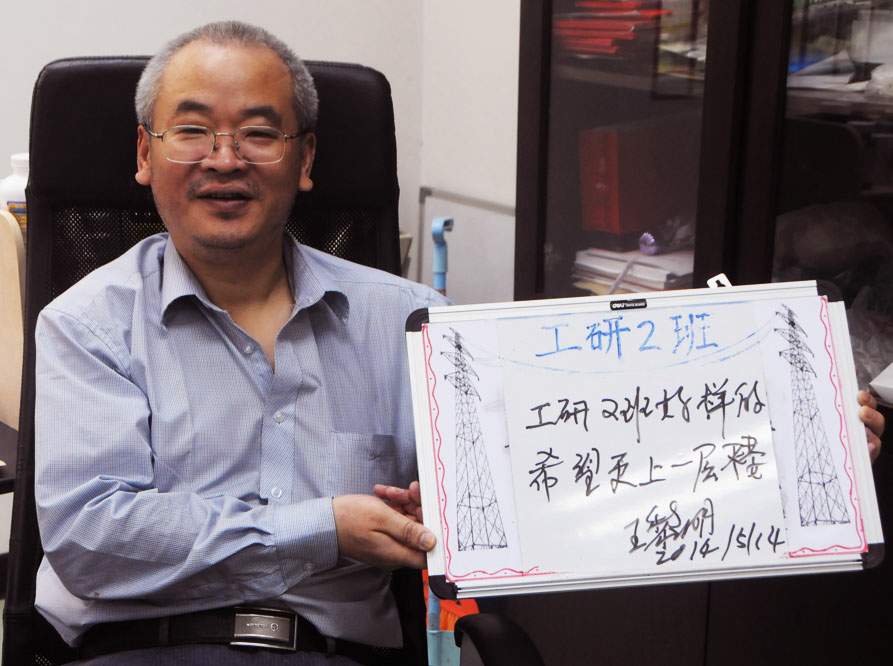 工研2班
工研2班好样的
希望更上一层楼
王黎明
2014/5/14